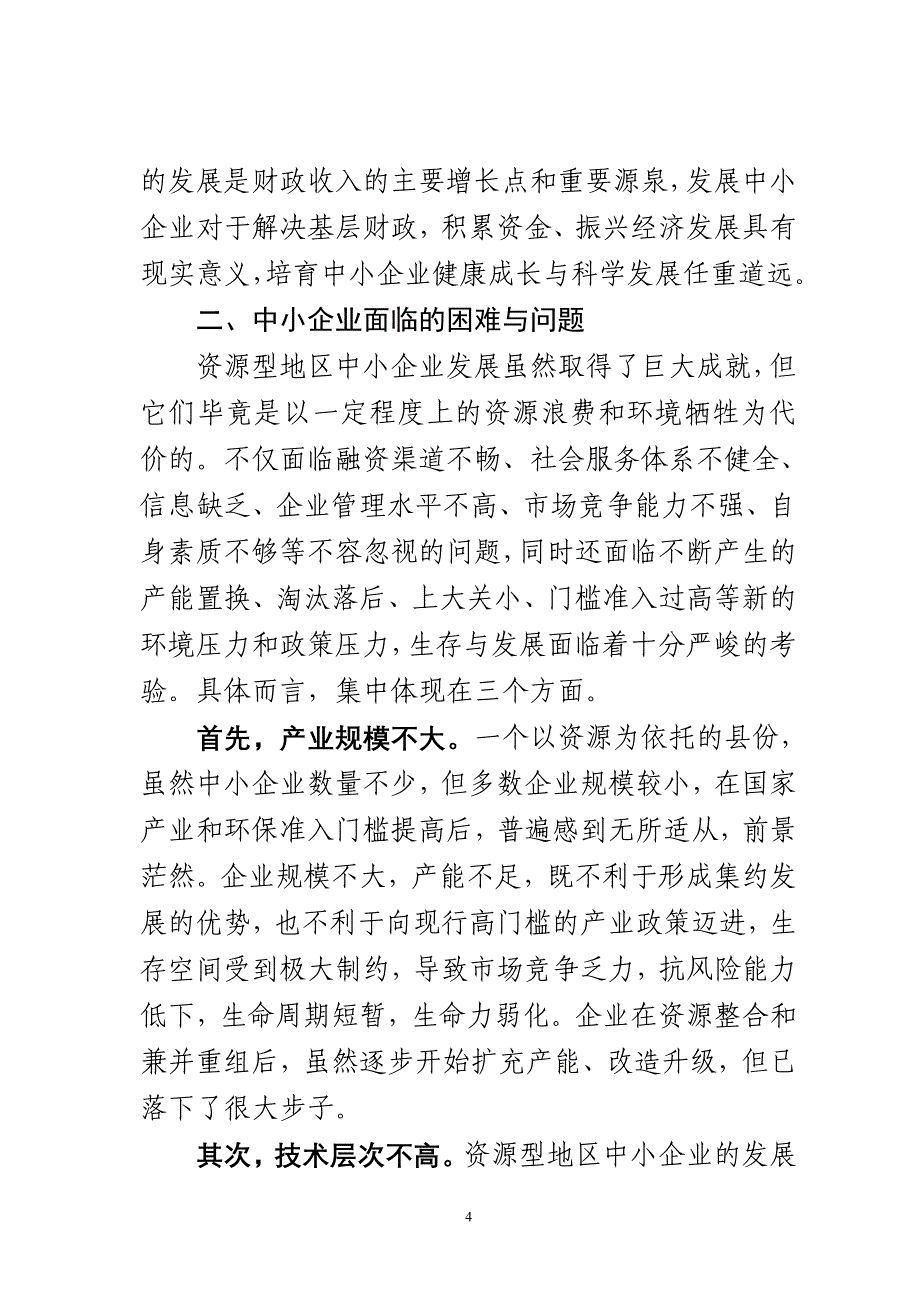 的发展是财政收入的主要增长点和重要源泉，发展中小
企业对于解决基层财政，积累资金、振兴经济发展具有
现实意义，培育中小企业健康成长与科学发展任重道远。
二、中小企业面临的困难与问题
资源型地区中小企业发展虽然取得了巨大成就，但
它们毕竟是以一定程度上的资源浪费和环境牺牲为代
价的。不仅面临融资渠道不畅、社会服务体系不健全、
信息缺乏、企业管理水平不高、市场竞争能力不强、自
身素质不够等不容忽视的问题，同时还面临不断产生的
产能置换、淘汰落后、上大关小、门槛准入过高等新的
环境压力和政策压力，生存与发展面临着十分严峻的考
验。具体而言，集中体现在三个方面。
首先，产业规模不大。一个以资源为依托的县份，
虽然中小企业数量不少，但多数企业规模较小，在国家
产业和环保准入门槛提高后，普遍感到无所适从，前景
茫然。企业规模不大，产能不足，既不利于形成集约发
展的优势，也不利于向现行高门槛的产业政策迈进，生
存空间受到极大制约，导致市场竞争乏力，抗风险能力
低下，生命周期短暂，生命力弱化。企业在资源整合和
兼并重组后，虽然逐步开始扩充产能、改造升级，但已
落下了很大步子。
其次，技术层次不高。资源型地区中小企业的发展
4